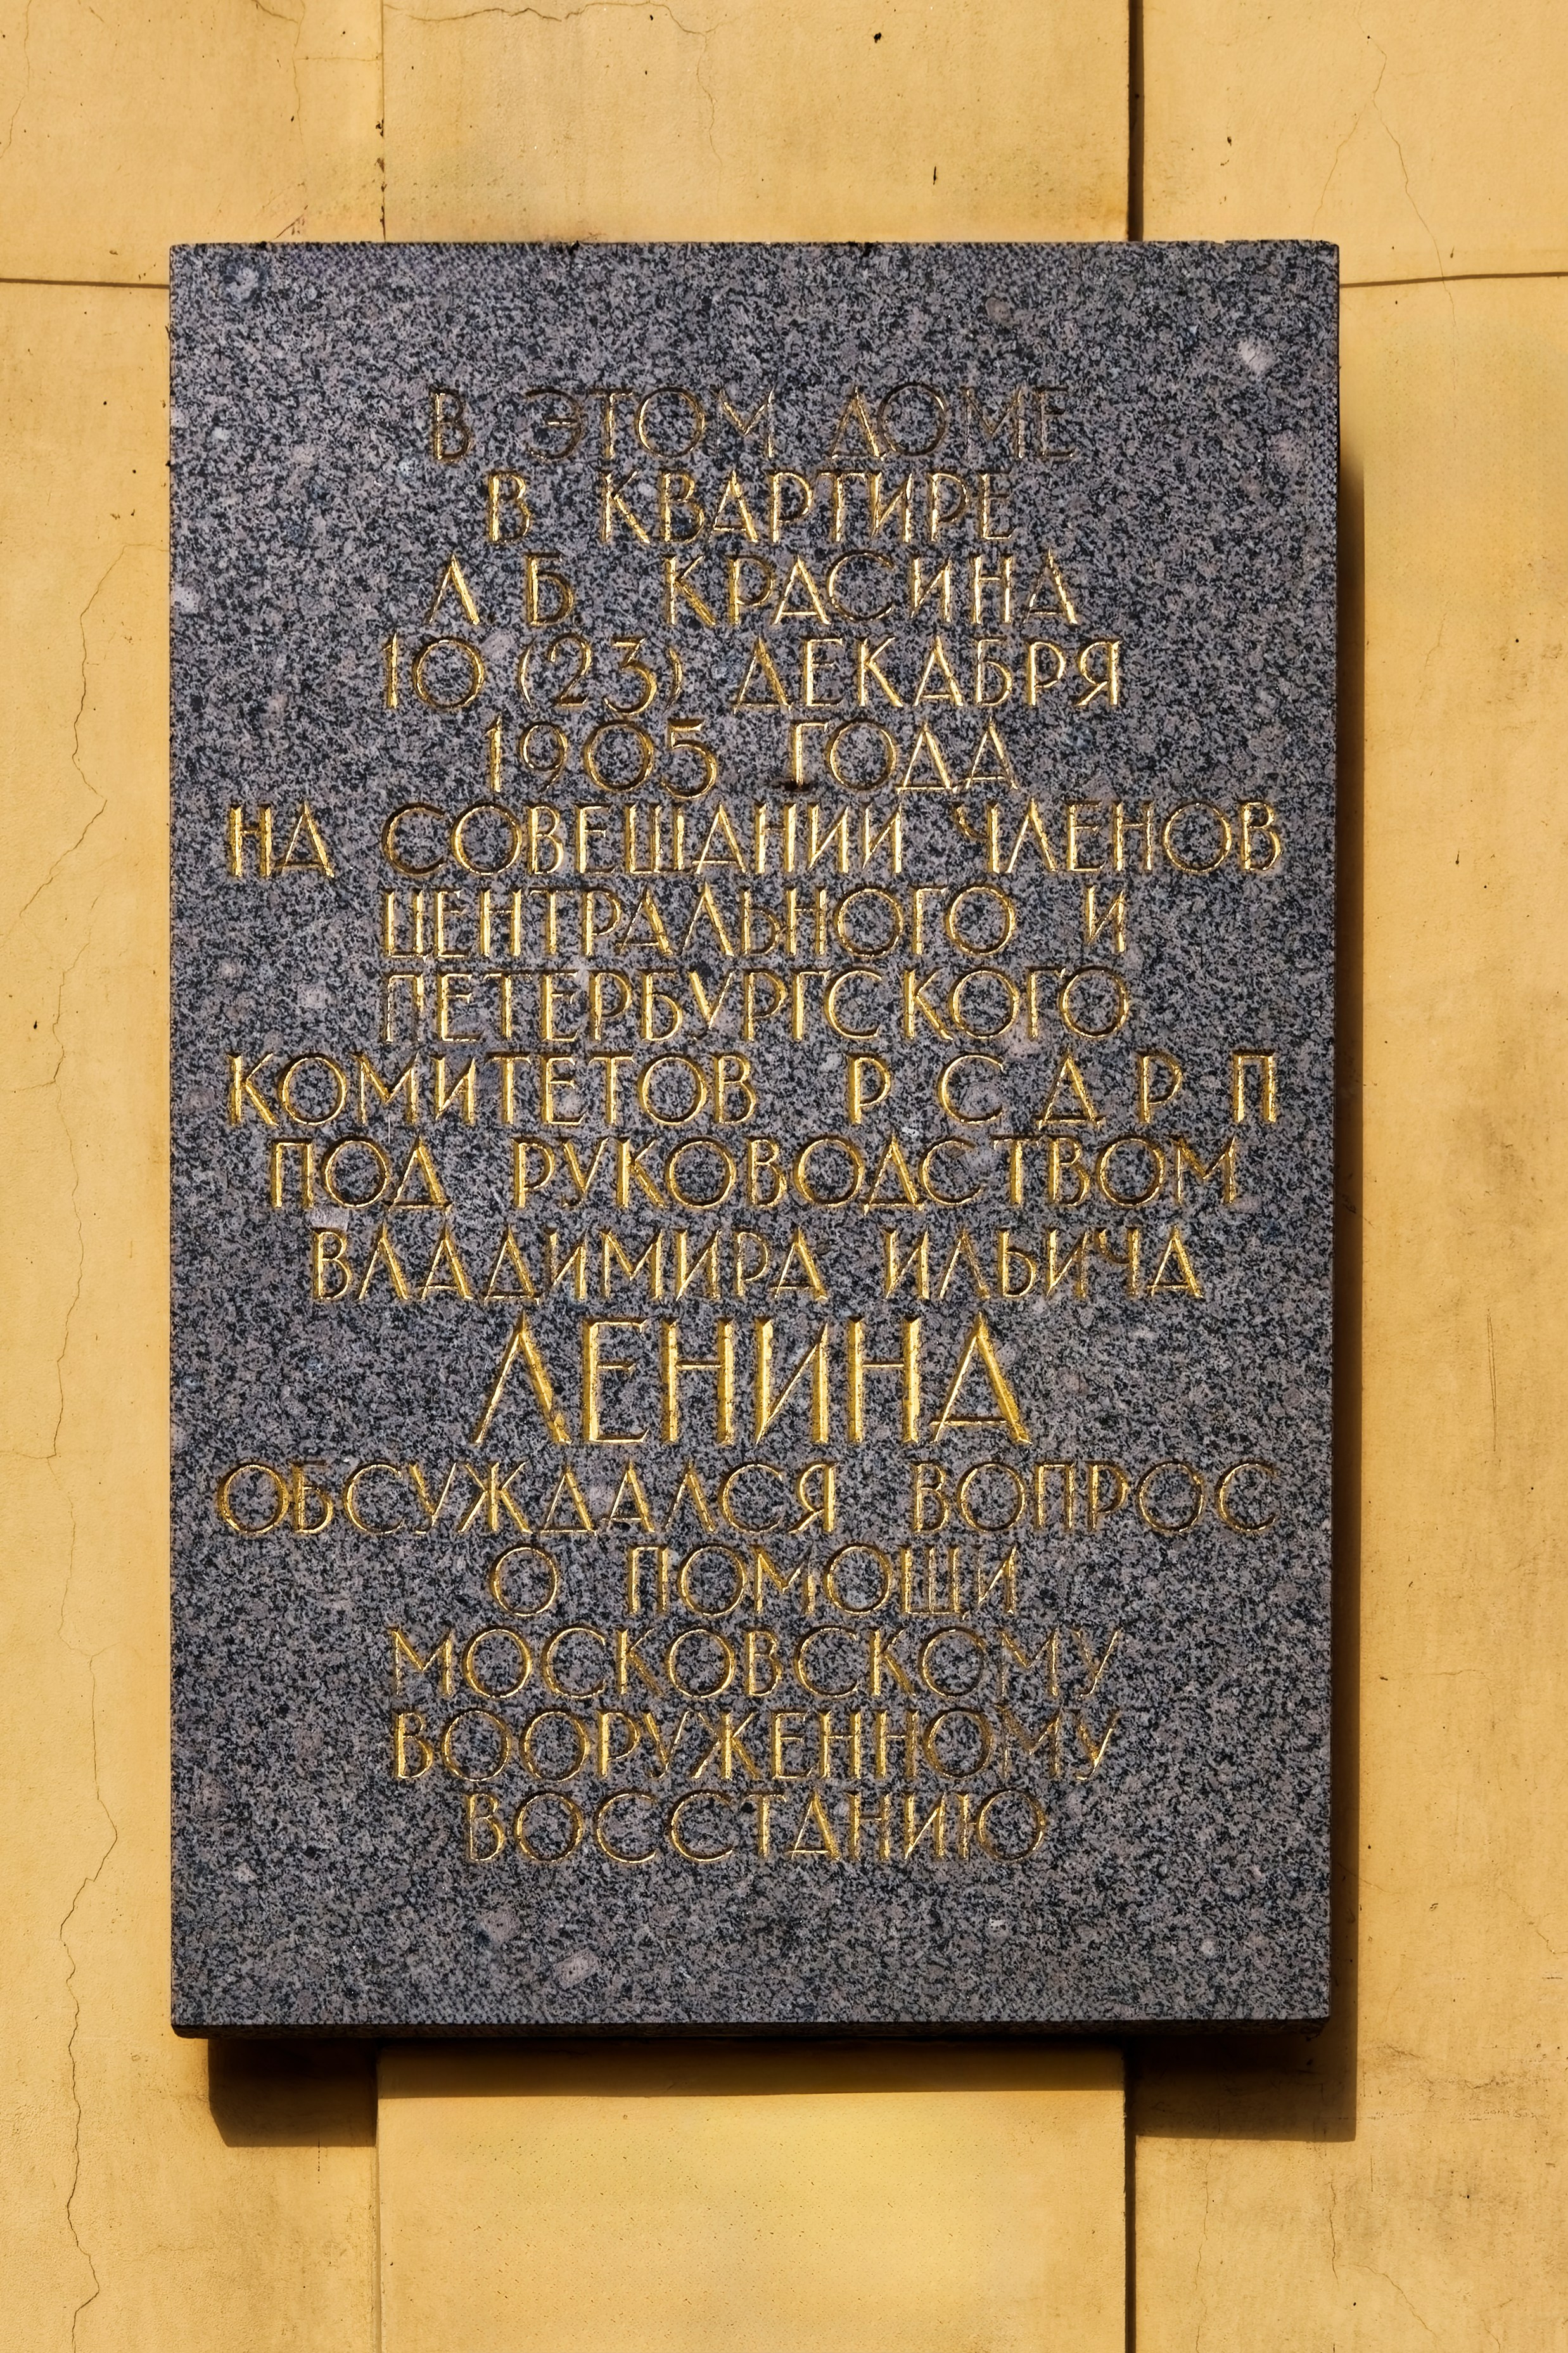 В ЭТОМ ДОМЕ
В КВАРТИРЕ
Л Б КРАСИНА
10 (23) ДЕКАБРЯ
1905 ГОДА
НА СОВЕЩАНИИ ЧЛЕНОВ
ЦЕНТРАЛЬНОГО И
ПЕТЕРБУРГСКОГО
КОМИТЕТОВ Р С Д Р П
ПОД РУКОВОДСТВОМ
ВЛАДИМИРА ИЛЬИЧА
ЛЕНИНА
ОБСУЖДАЛСЯ ВОПРОС
О ПОМОЩИ
МОСКОВСКОМУ
ВООРУЖЕННОМУ
ВОССТАНИЮ